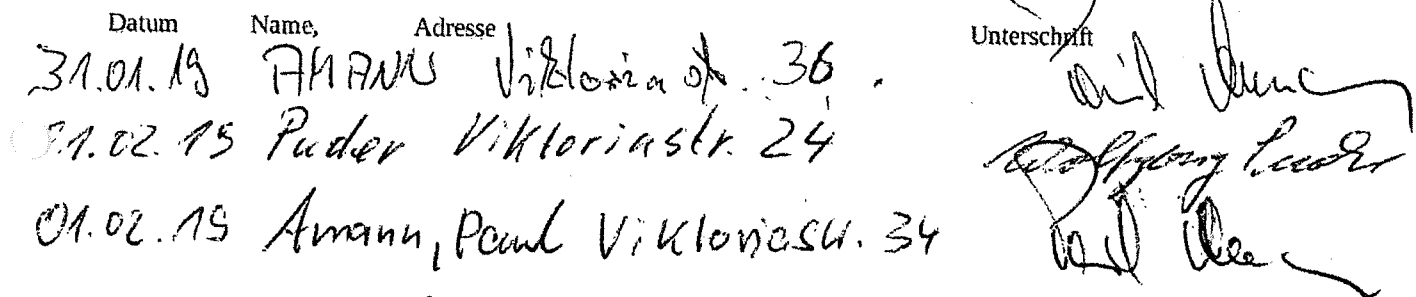 Datum Name, Adresse Unterschrift
31.01.19 AMANN Viktoriastr. 36.
01.02.19 Puder Viktoriastr. 24 Wolfgang Puder
01.02.19 Amann, Paul Viktoriastr. 34